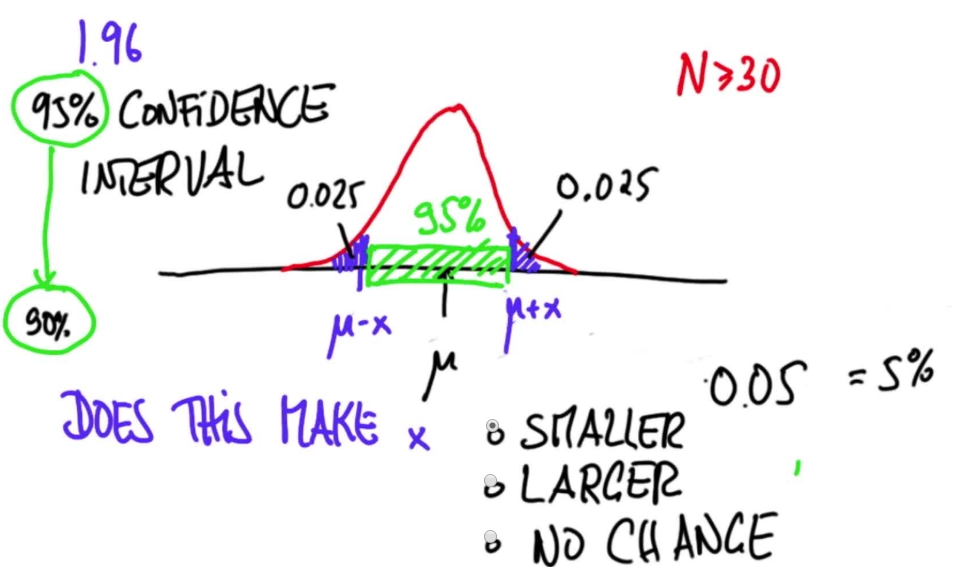 1.96
N≥30
95% CONFIDENCE
INTERVAL
0.025
95%
0.025
90%
μ-x
μ+x
μ
0.05 = 5%
DOES THIS MAKE x
SMALLER
LARGER
NO CHANGE